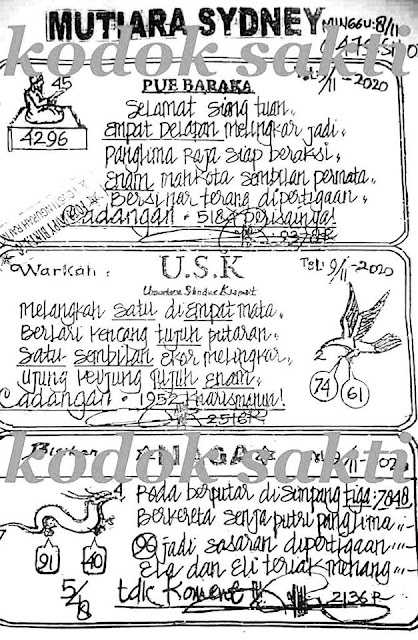 MUTIARA SYDNEY MINGGU: 8/11
kodok sakti
9/11-2020
45
4296
PUE BARAKA
Selamat siang tuan,
Empat Delapan melingkar jadi,
Panglima Raja siap beraksi,
Enam mahkota sembilan permata,
Bersinar terang dipertigaan,
Cadangan - 5184 perisainya!
Warkah:
U.S.K
Tgl: 9/11-2020
Melangkah satu di empat mata,
Berlari kencang tujuh putaran,
Satu sembilan ekor melingkar,
Ujung keujung tujuh enam,
Cadangan - 1952 kharismanya!
2516R
2
74 61
kodok sakti
NAGA
Roda berputar disimpang tiga: 7848
Berkereta senja putri panglima
96 jadi sasaran dipertigaan
Ela dan Eli teriak menang
91 40
5/8
tdk Koment
2136R